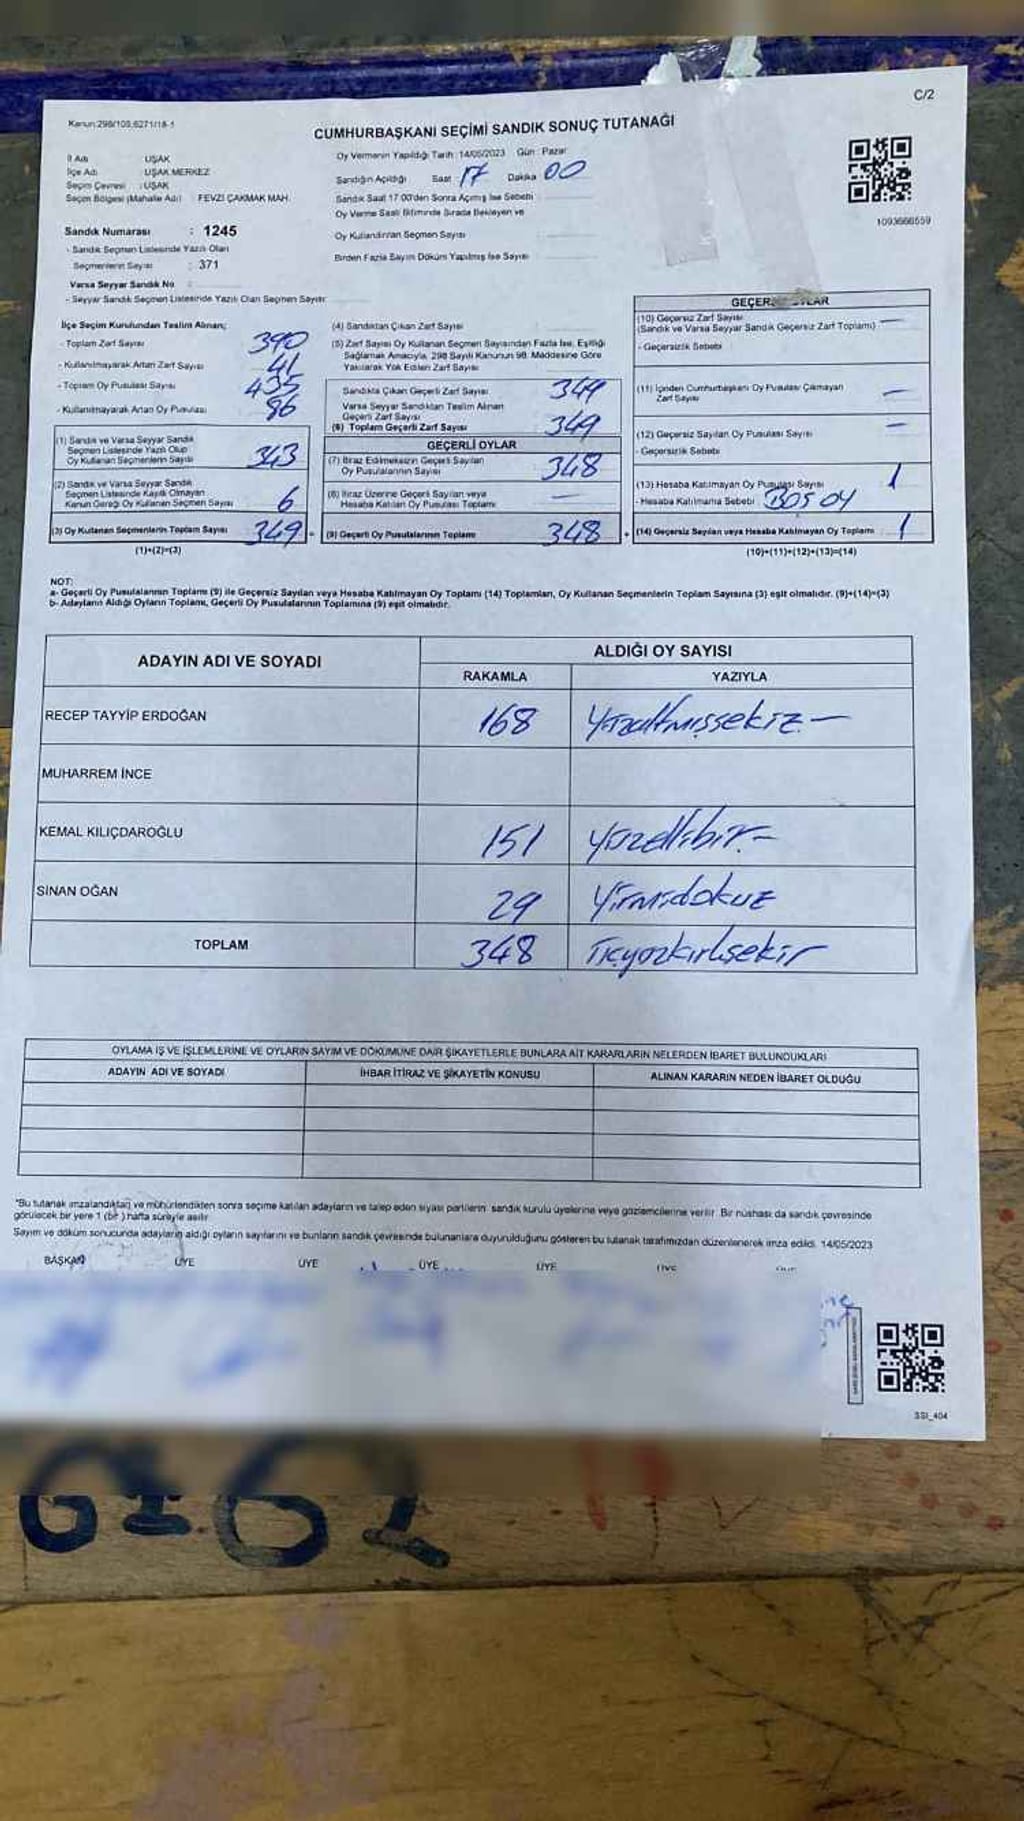 C/2
Kanun:298/105,6271/18-1
CUMHURBAŞKANI SEÇİMİ SANDIK SONUÇ TUTANAĞI
İl Adı UŞAK
İlçe Adı UŞAK MERKEZ
Seçim Çevresi : UŞAK
Seçim Bölgesi (Mahalle Adı) : FEVZİ ÇAKMAK MAH.
Oy Vermenin Yapıldığı Tarih: 14/05/2023 Gün: Pazar
Sandığın Açıldığı Saat 17 Dakika 00
Sandık Saat 17:00'den Sonra Açılmış İse Sebebi
Oy Verme Saati Bitiminde Sırada Bekleyen ve
Oy Kullandırılan Seçmen Sayısı
Birden Fazla Sayım Dökümü Yapılmış İse Sayısı
1093666559
Sandık Numarası : 1245
- Sandık Seçmen Listesinde Yazılı Olan
Seçmenlerin Sayısı : 371
Varsa Seyyar Sandık No :
- Seyyar Sandık Seçmen Listesinde Yazılı Olan Seçmen Sayısı:
İlçe Seçim Kurulundan Teslim Alınan;
- Toplam Zarf Sayısı 390
- Kullanılmayarak Artan Zarf Sayısı 41
- Toplam Oy Pusulası Sayısı 435
- Kullanılmayarak Artan Oy Pusulası 86
(1) Sandık ve Varsa Seyyar Sandık
Seçmen Listesinde Yazılı Olup
Oy Kullanan Seçmenlerin Sayısı 343
(2) Sandık ve Varsa Seyyar Sandık
Seçmen Listesinde Kayıtlı Olmayan
Kanun Gereği Oy Kullanan Seçmen Sayısı 6
(3) Oy Kullanan Seçmenlerin Toplam Sayısı 349 =
(1)+(2)=(3)
(4) Sandıktan Çıkan Zarf Sayısı
(5) Zarf Sayısı Oy Kullanan Seçmen Sayısından Fazla İse, Eşitliği
Sağlamak Amacıyla, 298 Sayılı Kanunun 98. Maddesine Göre
Yakılarak Yok Edilen Zarf Sayısı
Sandıkta Çıkan Geçerli Zarf Sayısı 349
Varsa Seyyar Sandıktan Teslim Alınan
Geçerli Zarf Sayısı
(6) Toplam Geçerli Zarf Sayısı 349
GEÇERLİ OYLAR
(7) İtiraz Edilmeksizin Geçerli Sayılan
Oy Pusulalarının Sayısı 348
(8) İtiraz Üzerine Geçerli Sayılan veya
Hesaba Katılan Oy Pusulası Toplamı —
(9) Geçerli Oy Pusulalarının Toplamı 348 +
(10) Geçersiz Zarf Sayısı —
(Sandık ve Varsa Seyyar Sandık Geçersiz Zarf Toplamı)
- Geçersizlik Sebebi
(11) İçinden Cumhurbaşkanı Oy Pusulası Çıkmayan
Zarf Sayısı —
(12) Geçersiz Sayılan Oy Pusulası Sayısı —
- Geçersizlik Sebebi
(13) Hesaba Katılmayan Oy Pusulası Sayısı 1
- Hesaba Katılmama Sebebi BOŞ OY
(14) Geçersiz Sayılan veya Hesaba Katılmayan Oy Toplamı 1
(10)+(11)+(12)+(13)=(14)
NOT:
a- Geçerli Oy Pusulalarının Toplamı (9) ile Geçersiz Sayılan veya Hesaba Katılmayan Oy Toplamı (14) Toplamları, Oy Kullanan Seçmenlerin Toplam Sayısına (3) eşit olmalıdır. (9)+(14)=(3)
b- Adayların Aldığı Oyların Toplamı, Geçerli Oy Pusulalarının Toplamına (9) eşit olmalıdır.
ADAYIN ADI VE SOYADI
ALDIĞI OY SAYISI
RAKAMLA YAZIYLA
RECEP TAYYİP ERDOĞAN 168 Yüzaltmışsekiz —
MUHARREM İNCE
KEMAL KILIÇDAROĞLU 151 Yüzellibir —
SİNAN OĞAN 29 Yirmidokuz
TOPLAM 348
OYLAMA İŞ VE İŞLEMLERİNE VE OYLARIN SAYIM VE DÖKÜMÜNE DAİR ŞİKAYETLERLE BUNLARA AİT KARARLARIN NELERDEN İBARET BULUNDUKLARI
ADAYIN ADI VE SOYADI İHBAR İTİRAZ VE ŞİKAYETİN KONUSU ALINAN KARARIN NEDEN İBARET OLDUĞU
*Bu tutanak imzalandıktan ve mühürlendikten sonra seçime katılan adayların ve talep eden siyasi partilerin sandık kurulu üyelerine veya gözlemcilerine verilir. Bir nüshası da sandık çevresinde
görülecek bir yere 1 (bir) hafta süreyle asılır.
Sayım ve döküm sonucunda adayların aldığı oyların sayılarını ve bunların sandık çevresinde bulunanlara duyurulduğunu gösteren bu tutanak tarafımızdan düzenlenerek imza edildi. 14/05/2023
BAŞKAN ÜYE ÜYE ÜYE ÜYE
SSI_404